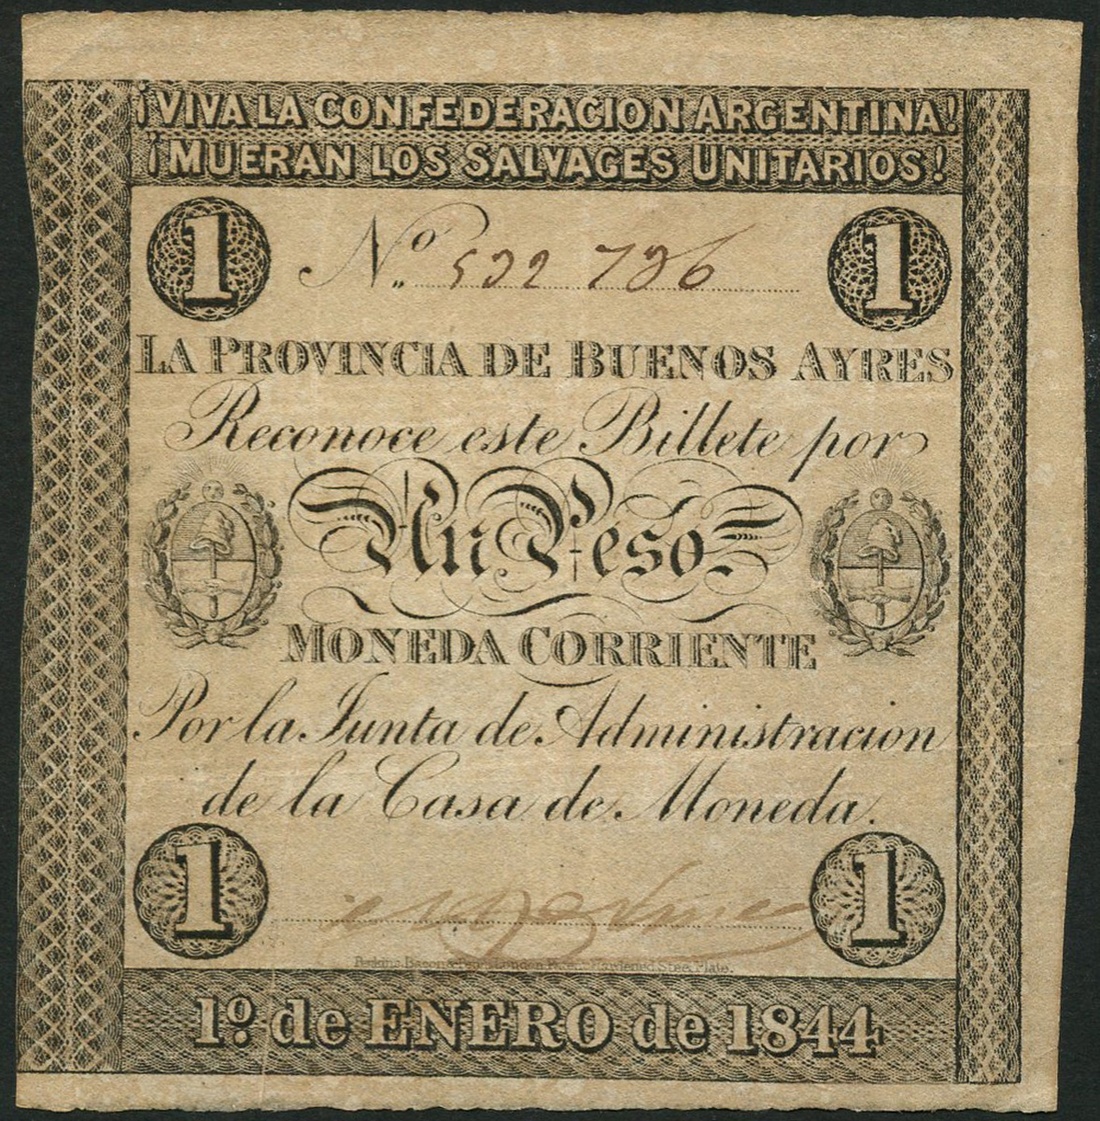 ¡VIVA LA CONFEDERACION ARGENTINA!
¡MUERAN LOS SALVAGES UNITARIOS!
1 1
Nº 522 726
LA PROVINCIA DE BUENOS AYRES
Reconoce este Billete por
Un Peso
MONEDA CORRIENTE
Por la Junta de Administracion
de la Casa de Moneda.
1 1
Perkins, Bacon & Petch London Patent Hardened Steel Plate.
1º de ENERO de 1844